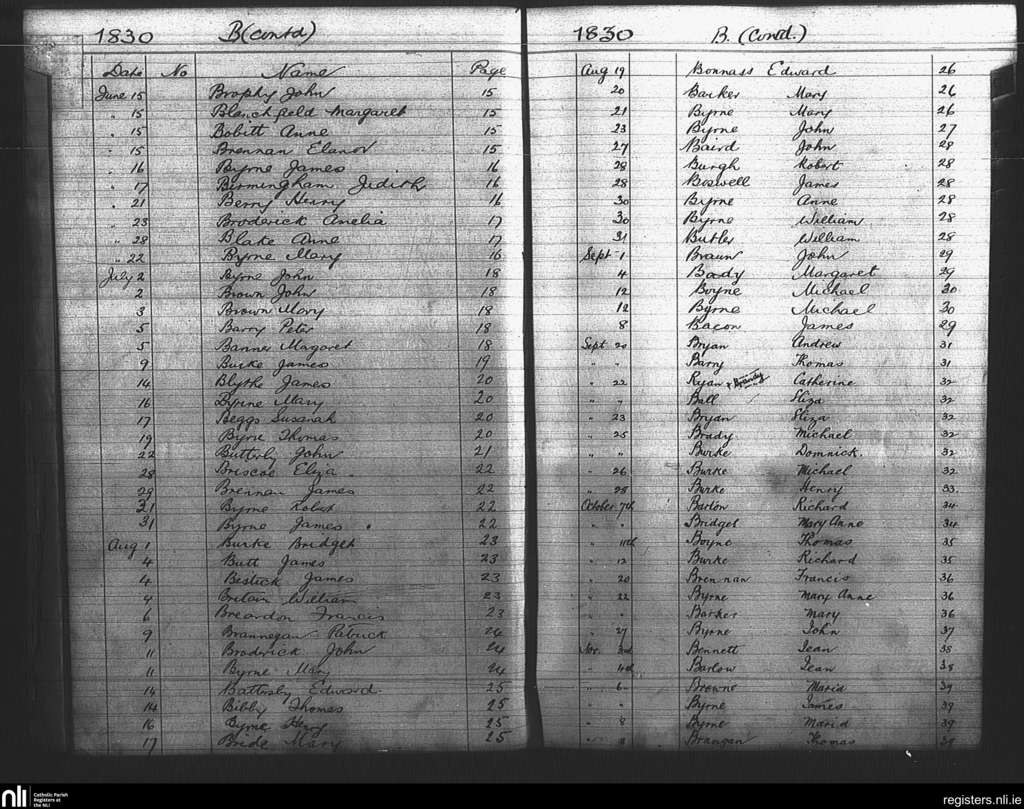 1830 B (contd)
Date No Name Page
June 15 Brophy John 15
" 15 Blenchfield Margaret 15
" 15 Bobitt Anne 15
" 15 Brennan Elanor 15
16 Byrne James 16
" 17 Birmingham Judith 16
" 21 Berry Henry 16
23 Broderick Anelia 17
" 28 Blake Anne 17
" 22 Byrne Mary 16
July 2 Byrne John 18
2 Brown John 18
3 Brown Mary 18
5 Barry Peter 18
5 Banner Magaret 18
9 Burke James 19
14 Blythe James 20
16 Byrne Mary 20
17 Beggs Susanah 20
19 Byrne Thomas 20
22 Butterly John 21
28 Briscoe Eliza 22
29 Brennan James 22
31 Byrne Robert 22
31 Byrne James 22
Aug 1 Burke Bridget 23
4 Butt James 23
4 Bestick James 23
4 Britain William 23
6 Breardon Francis 23
9 Brannegan Patrick 24
11 Broderick John 24
11 Byrne Mary 24
14 Battersby Edward 25
14 Bibby Thomas 25
16 Byrne Henry 25
17 Bride Mary 25
1830 B. (Contd.)
Aug 19 Bonnass Edward 26
20 Barker Mary 26
21 Byrne Mary 26
23 Byrne John 27
27 Baird John 28
28 Burgh Robert 28
28 Boswell James 28
30 Byrne Anne 28
30 Byrne William 28
31 Butler William 28
Sept 1 Braun John 29
4 Body Margaret 29
12 Boyne Michael 30
12 Byrne Michael 30
8 Bacon James 29
Sept 20 Bryan Andrew 31
" " Barry Thomas 31
" 22 Ryan Catherine 32
" " Ball Eliza 32
" 23 Bryan Eliza 32
" 25 Brady Michael 32
" " Burke Domnick. 32
" 26 Burke Michael 32
" 28 Burke Henry 33
October 7th Barton Richard 34
" " Bridget Mary Anne 34
" 11th Boyne Thomas 35
" 12 Burke Richard 35
" 20 Brennan Francis 36
" 22 Byrne Mary Anne 36
" " Barker Mary 36
" 27 Byrne John 37
Nov. 3rd Bennett Jean 38
" 4th Barlow Jean 38
" 6 Browne Maria 39
" " Byrne James 39
" 8 Byrne Maria 39
" 8 Brangan Thomas 39
nli Catholic Parish
Registers at
the NLI
registers.nli.ie